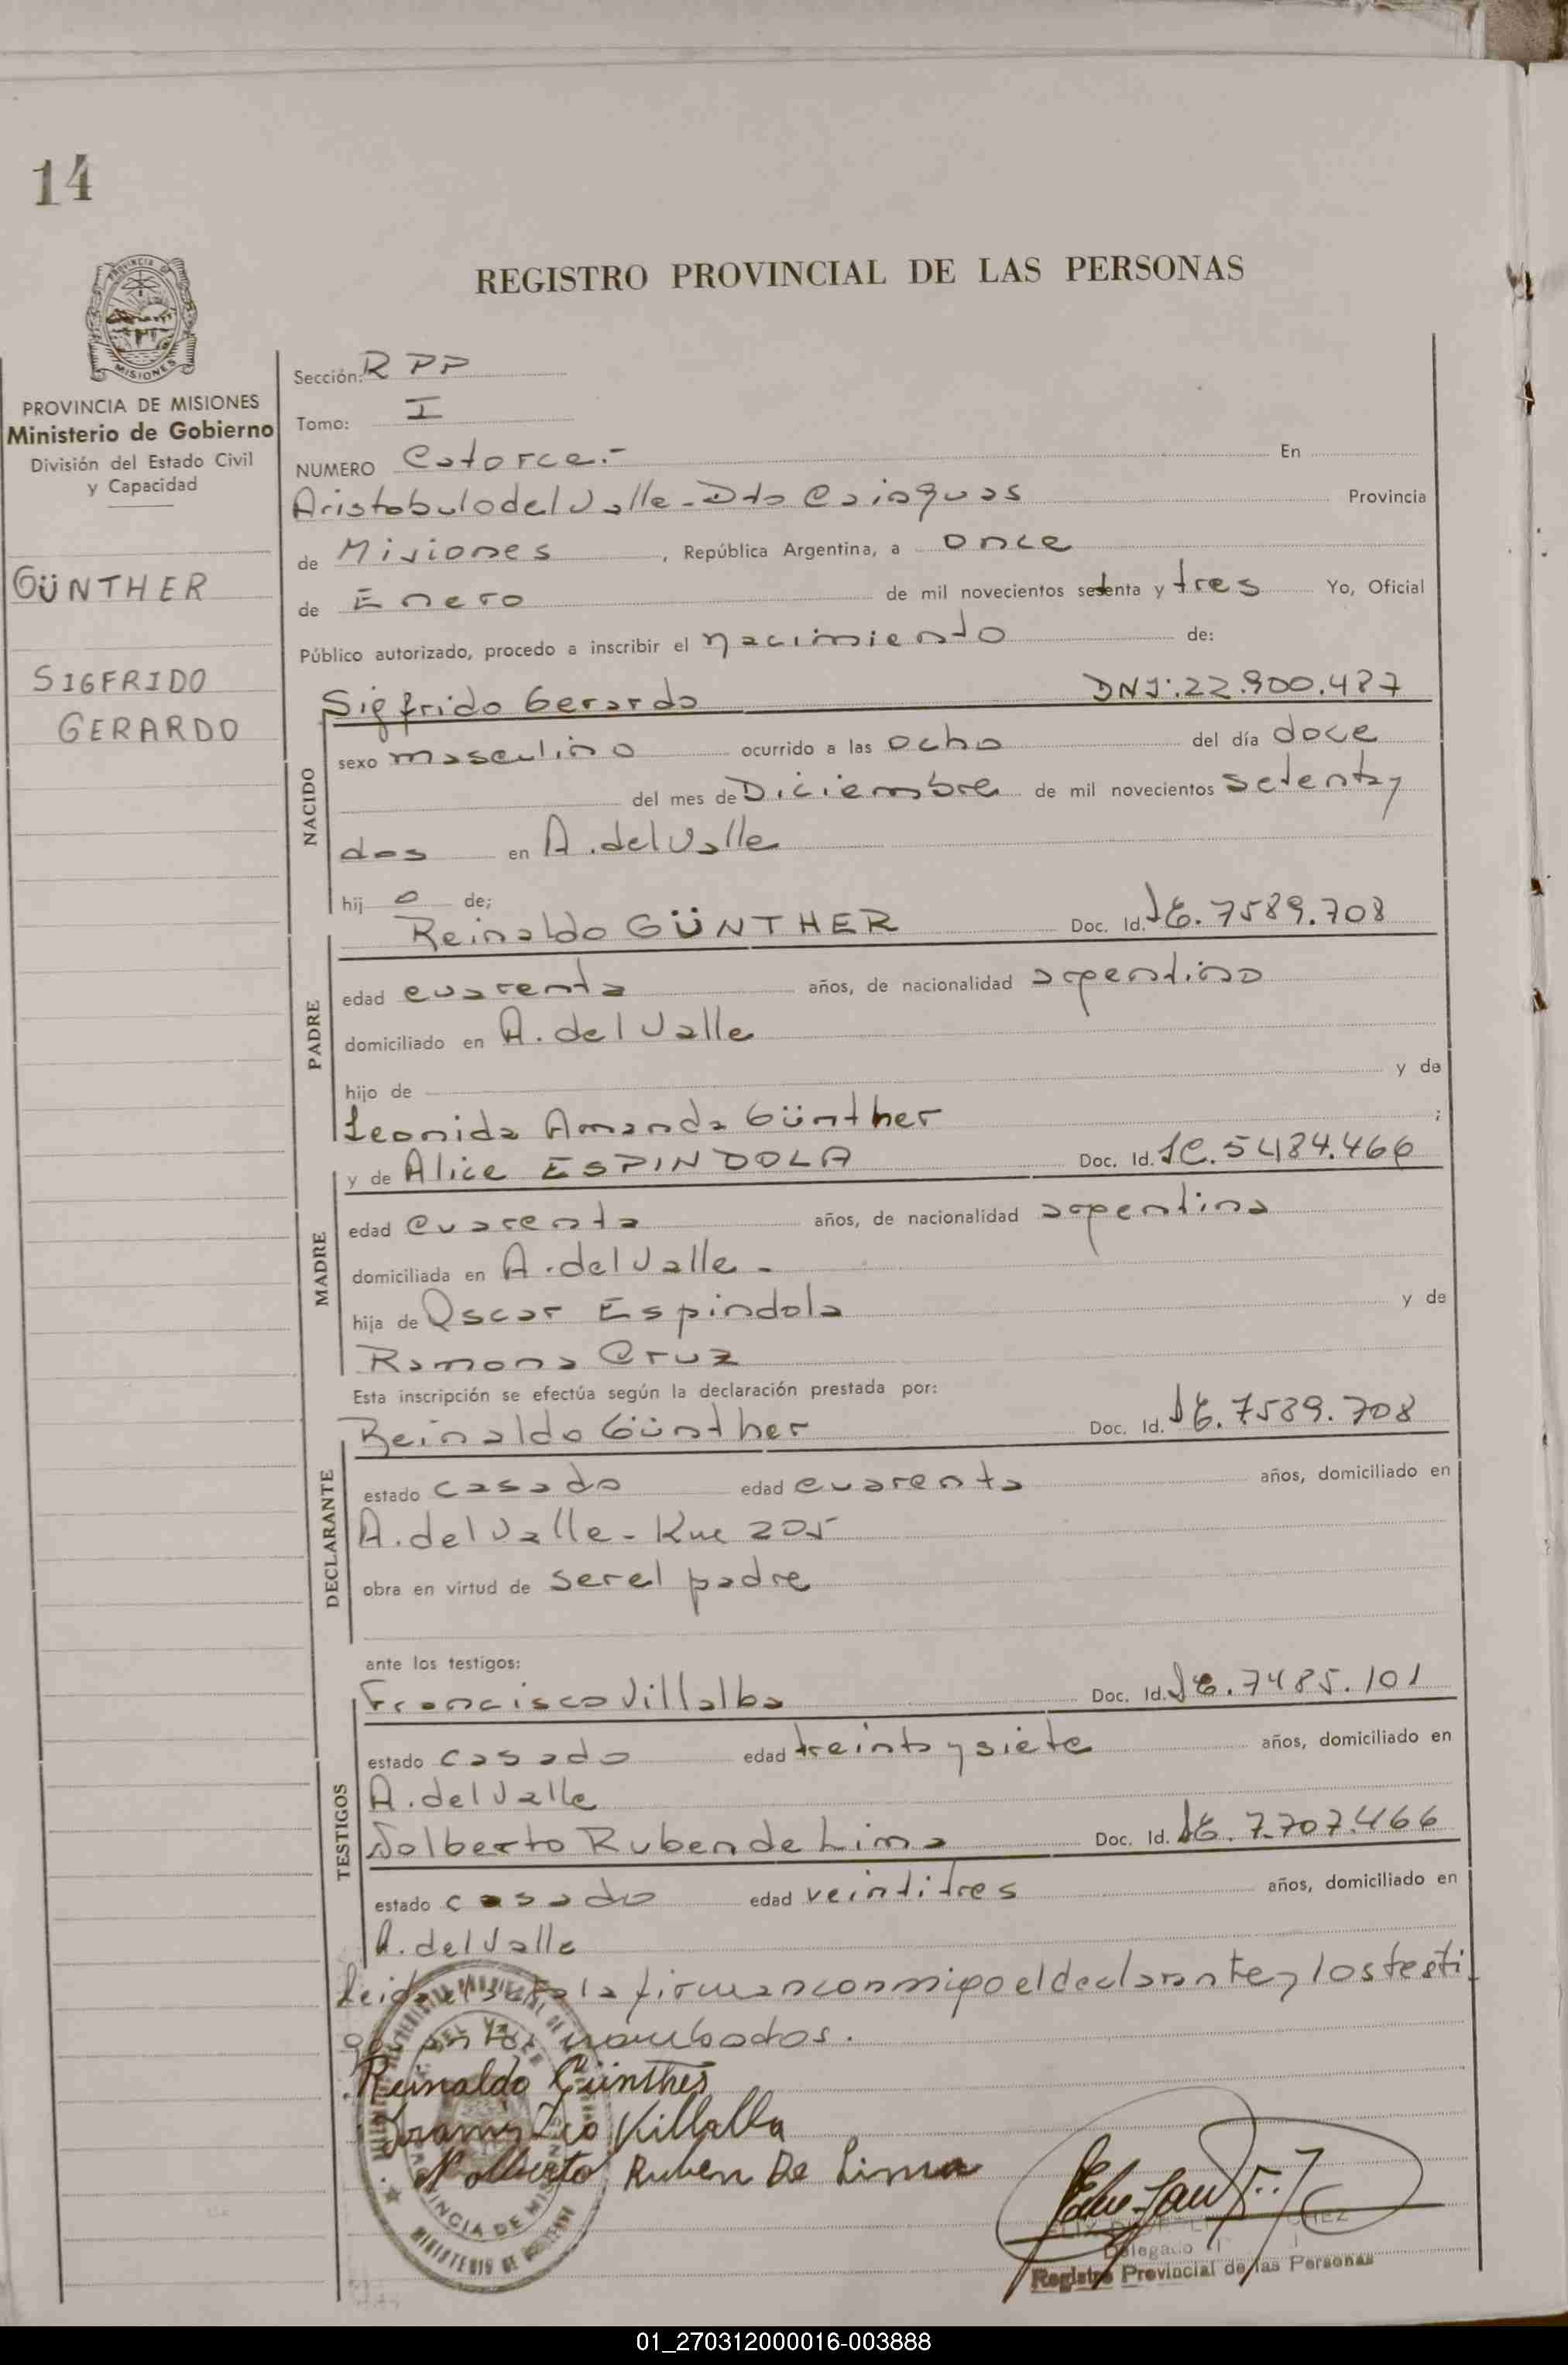 14
REGISTRO PROVINCIAL DE LAS PERSONAS
PROVINCIA DE MISIONES
Ministerio de Gobierno
División del Estado Civil
y Capacidad
GÜNTHER
SIGFRIDO
GERARDO
Sección: R P P
Tomo: I
NUMERO Catorce.- En
Aristobulo del Valle - Dto Cainguas Provincia
de Misiones , República Argentina, a once
de Enero de mil novecientos setenta y tres Yo, Oficial
Público autorizado, procedo a inscribir el nacimiento de:
Sigfrido Gerardo DNI: 22.900.487
NACIDO
sexo masculino ocurrido a las ocho del día doce
del mes de Diciembre de mil novecientos setenta y
dos en A. del Valle
hij o de;
Reinaldo GÜNTHER Doc. Id. 7589.708
PADRE
edad cuarenta años, de nacionalidad argentino
domiciliado en A. del Valle
hijo de y de
Leonida Amanda Günther ;
y de Alice ESPINDOLA Doc. Id. 5484.466
MADRE
edad cuarenta años, de nacionalidad argentina
domiciliada en A. del Valle -
hija de Oscar Espindola y de
Ramona Cruz
Esta inscripción se efectúa según la declaración prestada por:
Reinaldo Günther Doc. Id. 7589.708
DECLARANTE
estado casado edad cuarenta años, domiciliado en
A. del Valle - Km 205
obra en virtud de ser el padre
ante los testigos:
Francisco Villalba Doc. Id. 7485.101
TESTIGOS
estado casado edad treinta y siete años, domiciliado en
A. del Valle
Nolberto Ruben de Lima Doc. Id. 7.707.466
estado casado edad veintitres años, domiciliado en
A. del Valle
Leida el acta la firman conmigo el declarante y los testi
gos nombados.
Reinaldo Günther
Francisco Villalba
Nolberto Ruben De Lima
Delegado
Registro Provincial de las Personas
01_270312000016-003888